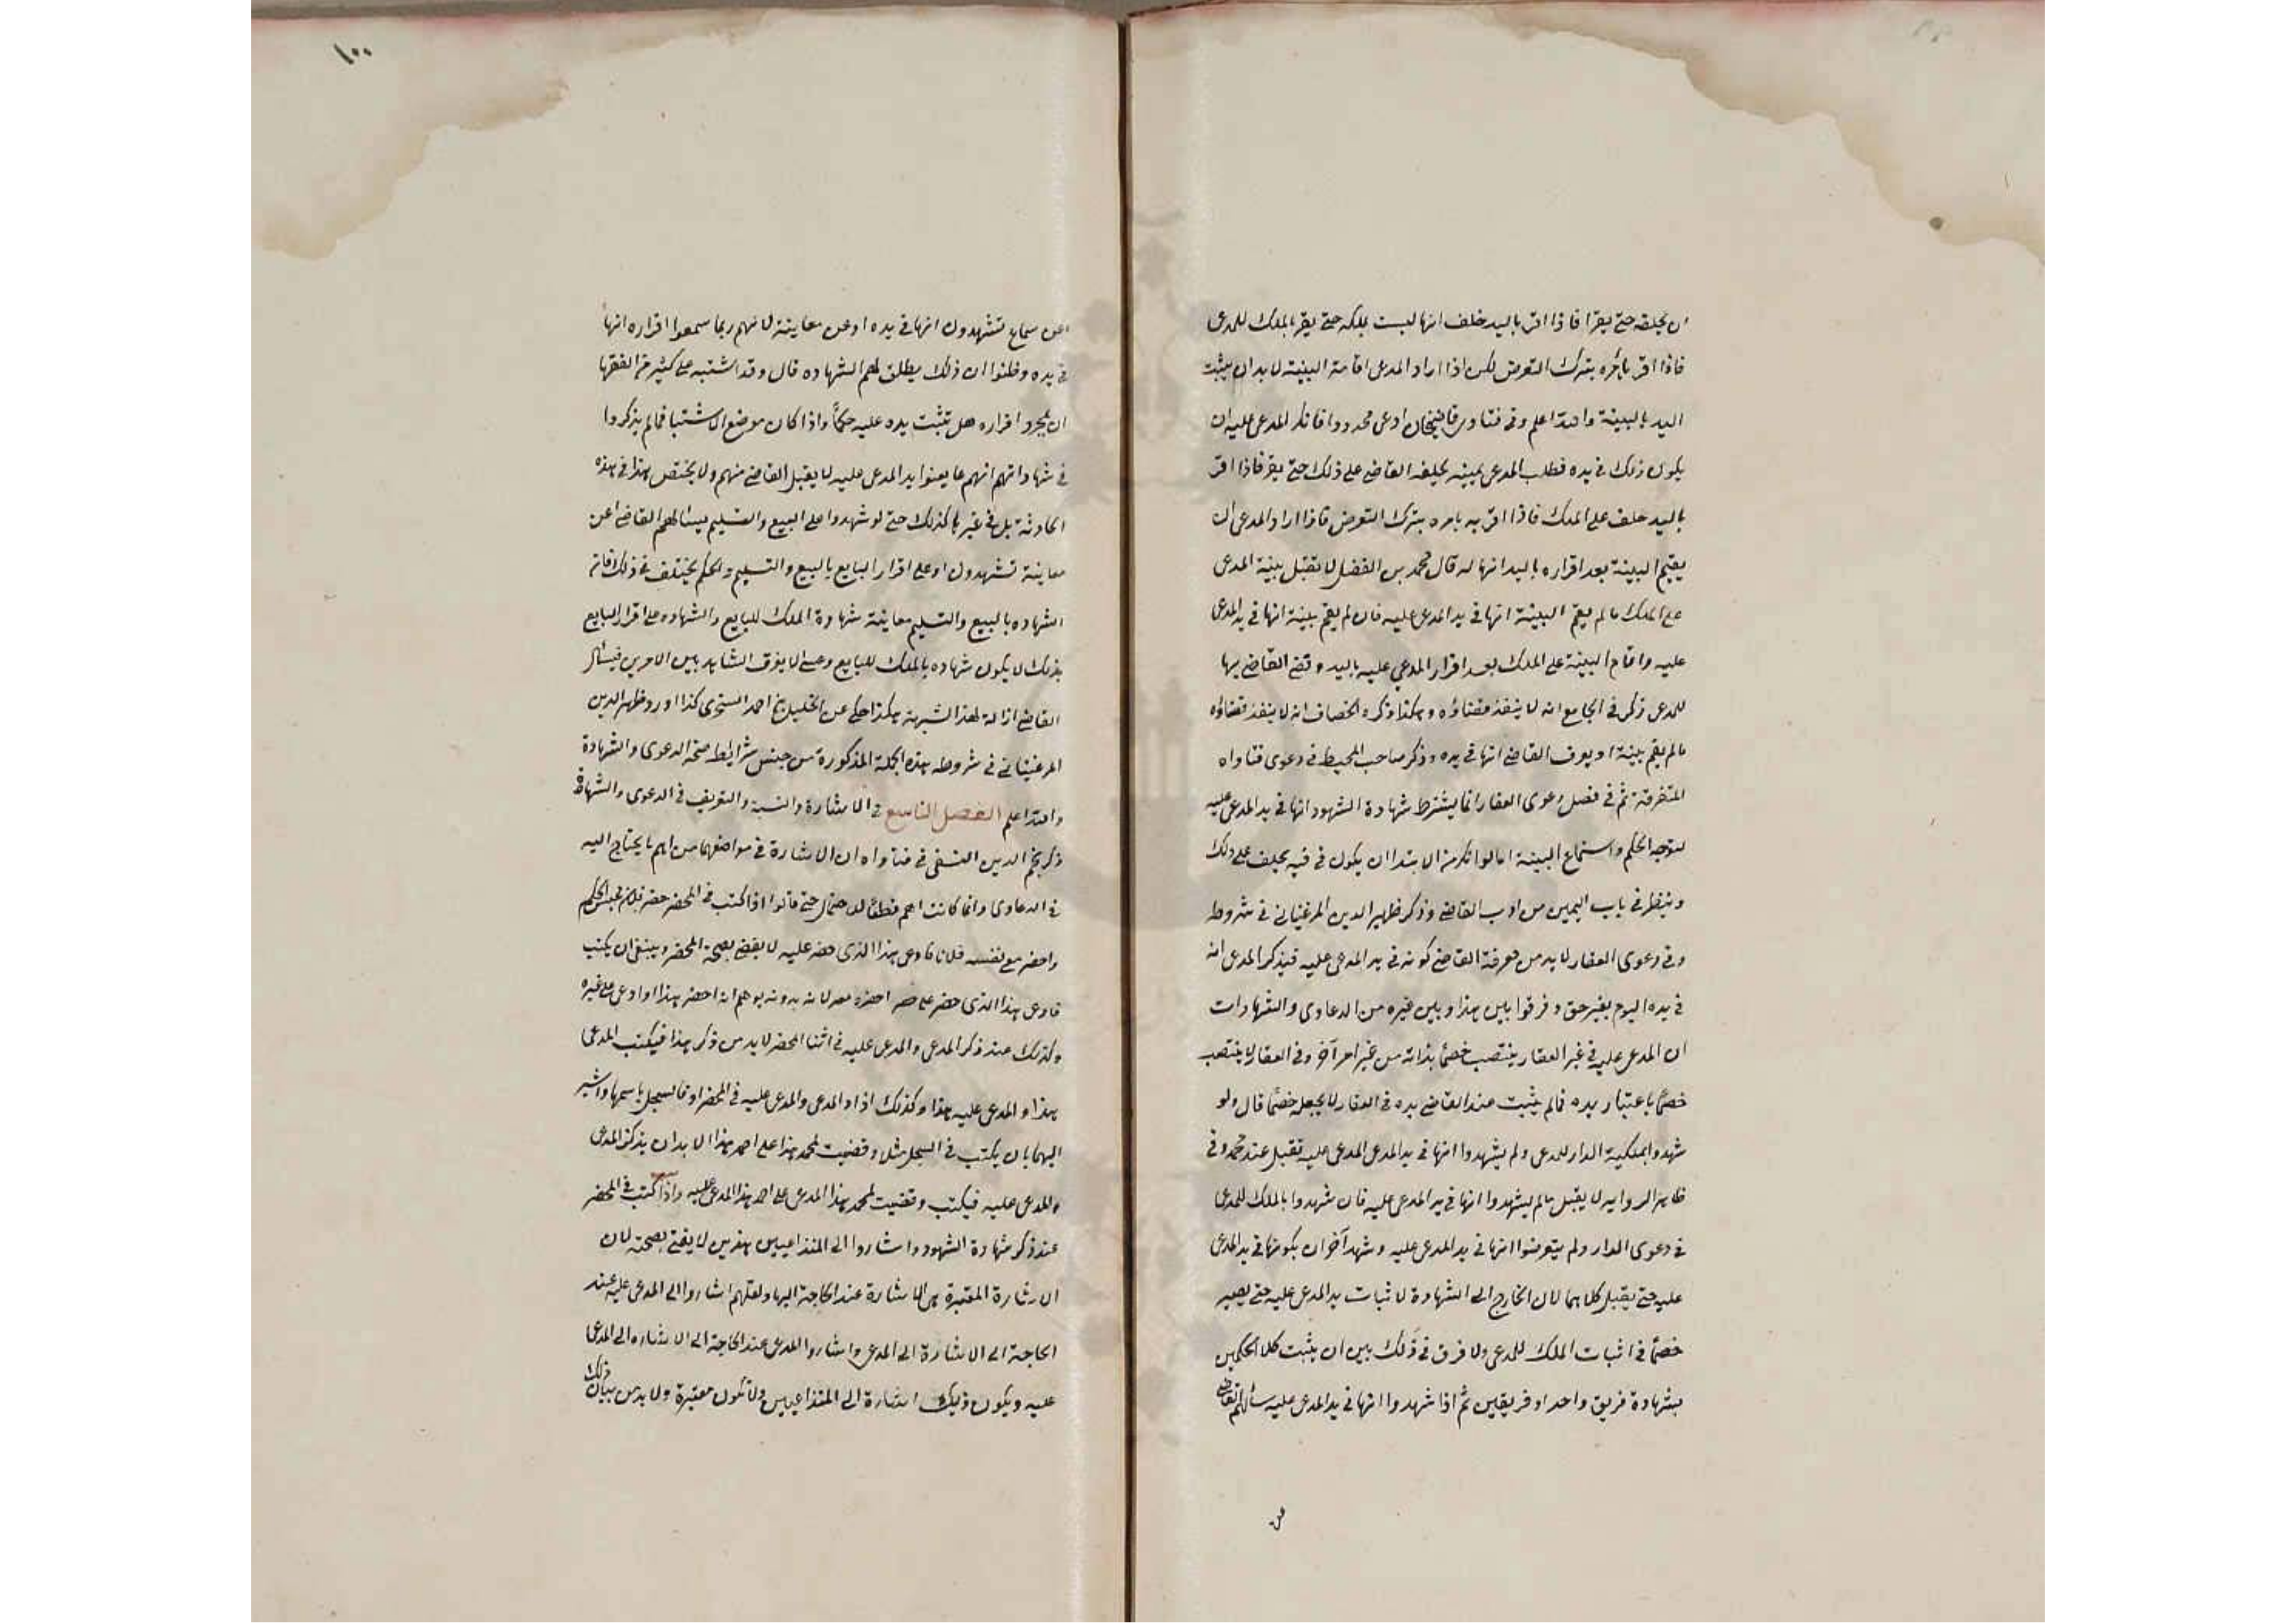 ان يحلفه حتى يقر فاذا اقر باليد حلف انها ليست بملكه حتى يقر بالملك للمدعى
فاذا اقر يامره بترك التعرض لكن اذا اراد المدعى اقامة البينة لا بد ان يثبت
اليد بالبينة والله اعلم وفى فتاوى قاضيخان ادعى محدودا فانكر المدعى عليه ان
يكون ذلك فى يده فطلب المدعى يمينه يحلفه القاضى على ذلك حتى يقر فاذا اقر
باليد حلف على الملك فاذا اقر به يامره بترك التعرض فاذا اراد المدعى ان
يقيم البينة بعد اقراره باليد انها له قال محمد بن الفضل لا تقبل بينة المدعى
على الملك ما لم يقم البينة انها فى يد المدعى عليه فان لم يقم بينة انها فى يد المدعى
عليه واقام البينة على الملك بعد اقرار المدعي عليه باليد وقضى القاضى بها
للمدعى ذكر فى الجامع انه لا ينفذ قضاؤه وهكذا ذكره الخصاف انه لا ينفذ قضاؤه
ما لم يقم بينة او يعرف القاضى انها فى يده وذكر صاحب المحيط فى دعوى فتاواه
المتفرقة ثم فى فصل دعوى العقار انما يشترط شهادة الشهود انها فى يد المدعى عليه
لتوجه الحكم واستماع البينة اما لو انكر من الابتدا ان يكون فى فيه يحلف على ذلك
وينظر فى باب اليمين من ادب القاضى وذكر ظهير الدين المرغينانى فى شروطه
وفى دعوى العقار لا بد من معرفة القاضى كونه فى يد المدعى عليه فيذكر المدعى انه
فى يده اليوم بغير حق وفرقوا بين هذا وبين غيره من الدعاوى والشهادات
ان المدعى عليه فى غير العقار ينتصب خصماً بذاته من غير امر آخر وفى العقار لا ينتصب
خصماً باعتبار يده فما لم يثبت عند القاضى يده فى العقار لا يجعله خصماً قال ولو
شهدوا بملكية الدار للمدعى ولم يشهدوا انها فى يد المدعى المدعى عليه تقبل عند محمد وفى
ظاهر الروايه لا يقبل ما لم يشهدوا انها فى يد المدعى عليه فان شهدوا بالملك للمدعى
فى دعوى الدار ولم يتعرضوا انها فى يد المدعى عليه وشهد آخران بكونها فى يد المدعى
عليه حتى يقبل كلاهما لان الخارج الى الشهادة لاثبات يد المدعى عليه حتى يصير
خصماً فى اثبات الملك للمدعى ولا فرق فى ذلك بين ان يثبت كلا الحكمين
بشهادة فريق واحد او فريقين ثم اذا شهدوا انها فى يد المدعى عليه سألهم القاضى
عن
١٠٠
اعن سماع تشهدون انها فى يده او عن معاينة لانهم ربما سمعوا اقراره انها
فى يده وظنوا ان ذلك يطلق لهم الشهاده قال وقد اشتبه على كثير من الفقها
ان بمجرد اقراره هل تثبت يده عليه حكماً واذا كان موضع الاشتبا فما لم يذكروا
فى شهاداتهم انهم عاينوا يد المدعى عليه لا يقبل القاضى منهم ولا يختص هذا فى هذه
الحادثة بل فى غيرها كذلك حتى لو شهدوا على البيع والتسليم يسالهم القاضى اعن
معاينة تشهدون او على اقرار البايع بالبيع والتسليم والحكم يختلف فى ذلك فان
الشهاده بالبيع والتسليم معاينة شهادة الملك للبايع والشهاده على اقرار البايع
بذلك لا يكون شهاده بالملك للبايع وعسى لا يفرق الشاهد بين الامرين فيسأل
القاضى ازالة لهذا الشبهة هكذا حكى عن الخليل بن احمد السنجرى كذا اورد ظهير الدين
المرغينانى فى شروطه هذه الجملة المذكورة من جنس شرايط صحة الدعوى والشهادة
والله اعلم الفصل التاسع فى الاشارة والنسبة والتعريف فى الدعوى والشهادة
ذكر نجم الدين النسفى فى فتاواه ان الاشارة فى مواضعها من اهم ما يحتاج اليه
فى الدعاوى وانما كانت اهم قطعاً للاحتمال حتى قالوا اذا كتب فى المحضر حضر فلان مجلس الحكم
واحضر مع نفسه فلانا فادعى هذا الذى حضر عليه لا يفتى بصحة المحضر وينبغى ان يكتب
فادعى هذا الذى حضر على هذا احضره معه لانه بدونه يوهم انه احضر هذا وادعى على غيره
وكذلك عند ذكر المدعى والمدعى عليه فى اثنا المحضر لا بد من ذكر هذا فيكتب المدعى
هذا والمدعى عليه هذا وكذلك اذا المدعى والمدعى عليه فى المحضر او فى السجل باسمهما واشير
اليهما بان يكتب فى السجل مثلا وقضيت لمحمد هذا على احمد هذا لا بد ان يذكر المدعى
والمدعى عليه فيكتب وقضيت لمحمد هذا المدعى على احمد هذا المدعى عليه واذا كتب فى المحضر
عند ذكر شهادة الشهود واشاروا الى المتداعيين هذين لا يفتى بصحته لان
الاشارة المعتبرة هى الاشارة عند الحاجة اليها ولعلهم اشاروا الى المدعى عليه عند
الحاجة الى الاشارة الى المدعى واشاروا المدعى عند الحاجة الى الاشاره الى المدعى
عليه ويكون ذلك اشارة الى المتداعيين ولا تكون معتبرة ولا بد من بيان ذلك